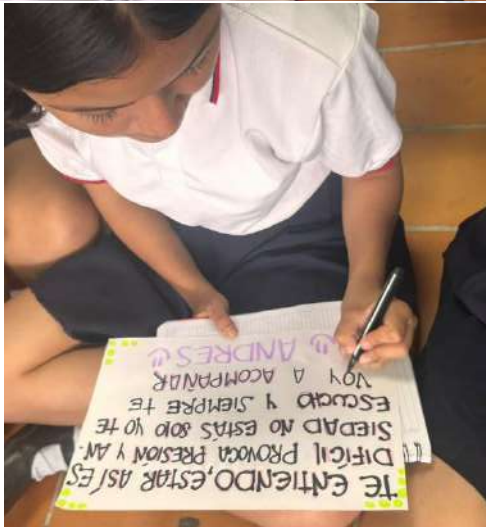 TE ENTIENDO, ESTAR ASÍ ES
DIFÍCIL PROVOCA PRESIÓN Y AN-
SIEDAD NO ESTÁS SOLO YO TE
ESCUCHO Y SIEMPRE TE
VOY A ACOMPAÑAR
ANDRES